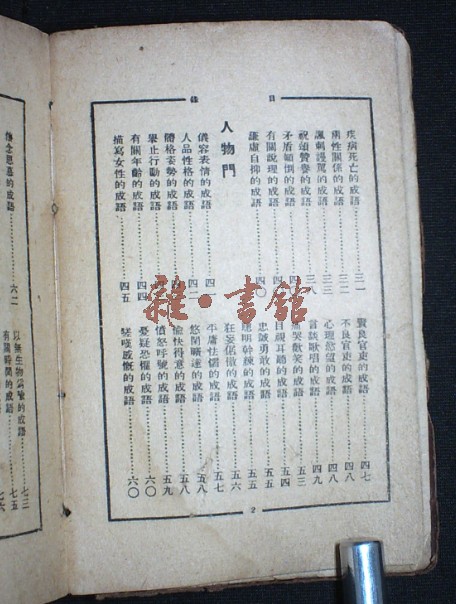 目錄
疾病死亡的成語……三一
兩性關係的成語……三二
諷刺謾罵的成語……三三
祝頌贊譽的成語……三八
矛盾的成語
有關說理的成語
謙虛自抑的成語……四〇
人物門
儀容表情的成語……四一
人品性格的成語……四二
體格姿勢的成語
舉止行動的成語
有關年齡的成語……四四
描寫女性的成語……四五
賢良官吏的成語……四七
不良官吏的成語……四八
心理慾望的成語……四八
言談歌唱的成語……四九
痛哭歡笑的成語……五三
目視耳聽的成語……五四
忠誠勇敢的成語……五五
聰明幹練的成語……五五
狂妄倨傲的成語……五六
平庸怯懦的成語……五七
悠閒曠達的成語……五八
愉快得意的成語……五八
憤怒呼號的成語……五九
憂疑恐懼的成語……六〇
嗟嘆感慨的成語……六〇
2
的成語……六二
以無生物為喻的成語……七三
有關時間的成語……七五
七六
雜·書館